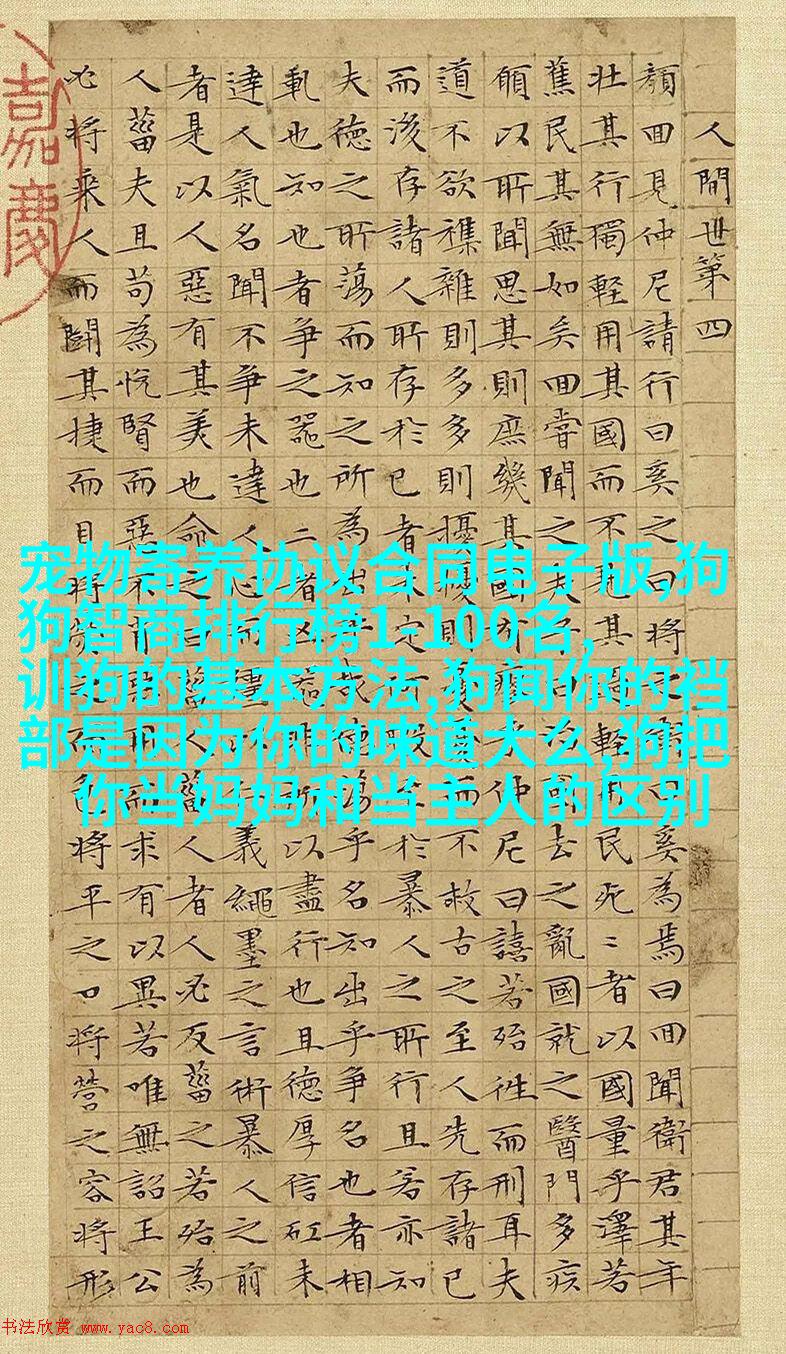 人間世第四
顏囬見仲尼請行曰奚之曰將之曰奚為焉曰囬聞衛君其年
壯其行獨輕用其國而不見其輕用民死〻者以國量乎澤若
蕉民其無如矣囬嘗聞之夫國去之亂國就之醫門多疾
願以所聞思其則庶幾其國有瘳乎仲尼曰譆若殆往而刑耳夫
道不欲襍雜則多多則擾擾則而不救古之至人先存諸已
而後存諸人所存於已者未定於暴人之所行且若亦知
夫德之所蕩而知之所為出乎哉德蕩乎名知出乎爭名也者相
軋也知也者爭之器也二者凶器所以盡行也且德厚信矼未
達人氣名聞不爭未達人心而彊義繩墨之言術暴人之前
者是以人惡有其美也命之曰菑人菑人者人必反菑之若殆為
人菑夫且苟為悅賢而惡不肖惡用而求有以異若唯無詔王公
必將乘人而鬭其捷而目將而色將平之口將營之容將形
嘉慶
宠物寄养协议合同电子版,狗
狗智商排行榜1-100名,
训狗的基本方法,狗闻你的裆
部是因为你的味道大么,狗把
你当妈妈和当主人的区别
书法欣赏 www.yac8.com